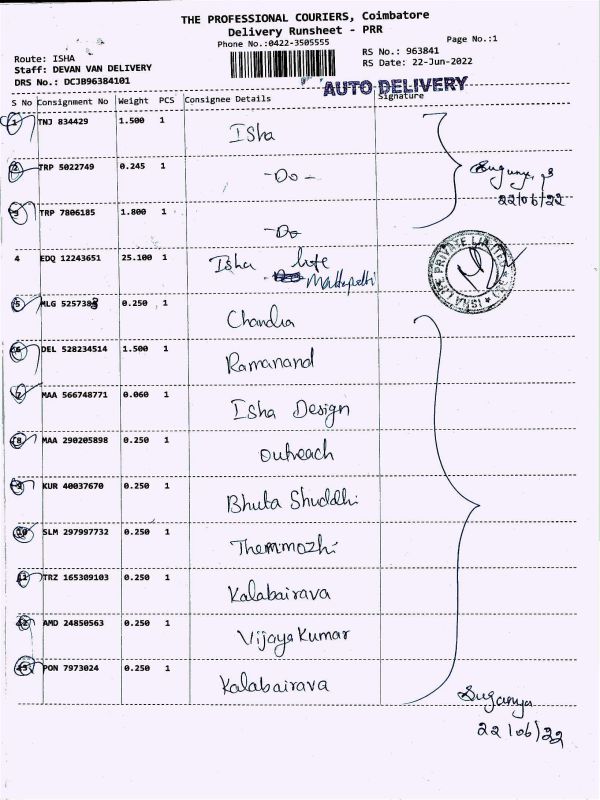 THE PROFESSIONAL COURIERS, Coimbatore
Delivery Runsheet - PRR
Phone No.:0422-3505555
Page No.:1
Route: ISHA
RS No.: 963841
Staff: DEVAN VAN DELIVERY
RS Date: 22-Jun-2022
DRS No.: DCJB96384101
AUTO DELIVERY
S No Consignment No Weight PCS Consignee Details Signature
1 TNJ 834429 1.500 1 Isha
2 TRP 5022749 0.245 1 -Do-
Suganya
22/06/22
3 TRP 7806185 1.800 1 -Do
4 EDQ 12243651 25.100 1 Isha life
ISHA LIFE PRIVATE LIMITED
5 MLG 5257383 0.250 1 Chandra
6 DEL 528234514 1.500 1 Ramanand
7 MAA 566748771 0.060 1 Isha Design
8 MAA 290205898 0.250 1 outreach
9 KUR 40037670 0.250 1 Bhuta Shuddhi
10 SLM 297997732 0.250 1 Thenmozhi
11 TRZ 165309103 0.250 1 Kalabairava
12 AMD 24850563 0.250 1 Vijaya Kumar
13 PON 7973024 0.250 1 Kalabairava
Suganya
22/06/22